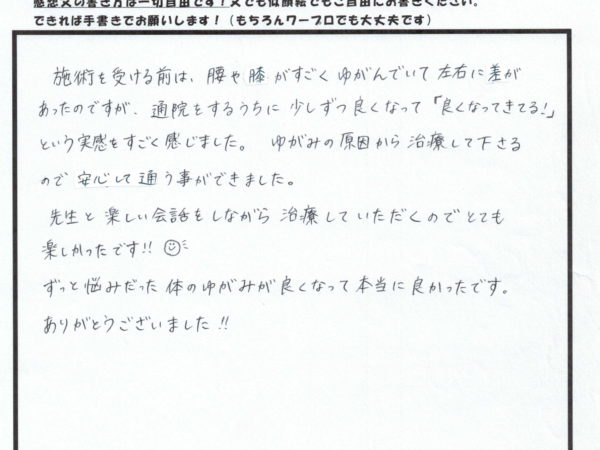 感想文の書き方は一切自由です！文でも似顔絵でもご自由にお書きください。
できれば手書きでお願いします！（もちろんワープロでも大丈夫です）
施術を受ける前は、腰や膝がすごくゆがんでいて左右に差が
あったのですが、通院をするうちに少しずつ良くなって「良くなってきてる!」
という実感をすごく感じました。ゆがみの原因から治療して下さる
ので安心して通う事ができました。
先生と楽しい会話をしながら治療していただくのでとても
楽しかったです!!
ずっと悩みだった体のゆがみが良くなって本当に良かったです。
ありがとうございました!!